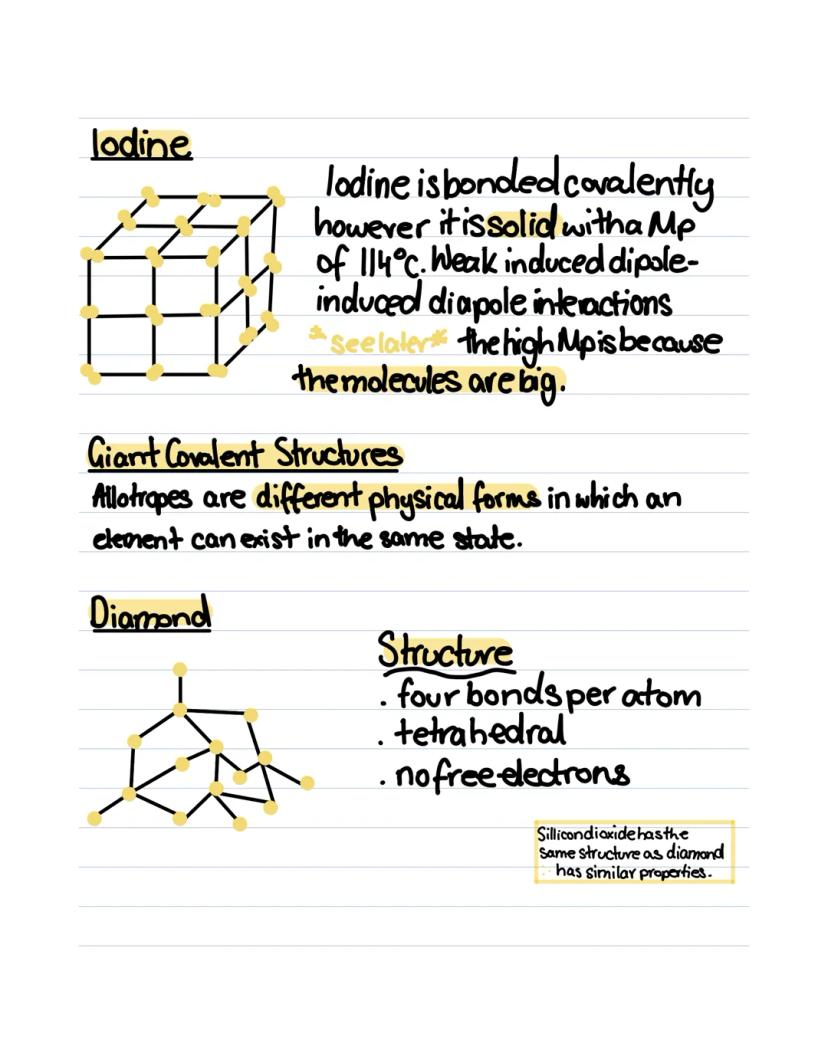 Iodine
Iodine is bonded covalently
however it is solid with a Mp
of 114°C. Weak induced dipole-
induced diapole interactions
*see later* the high Mp is because
the molecules are big.
Giant Covalent Structures
Allotropes are different physical forms in which an
element can exist in the same state.
Diamond
Structure
. four bonds per atom
. tetrahedral
. no free electrons
Sillicon dioxide has the
same structure as diamond
∴ has similar properties.